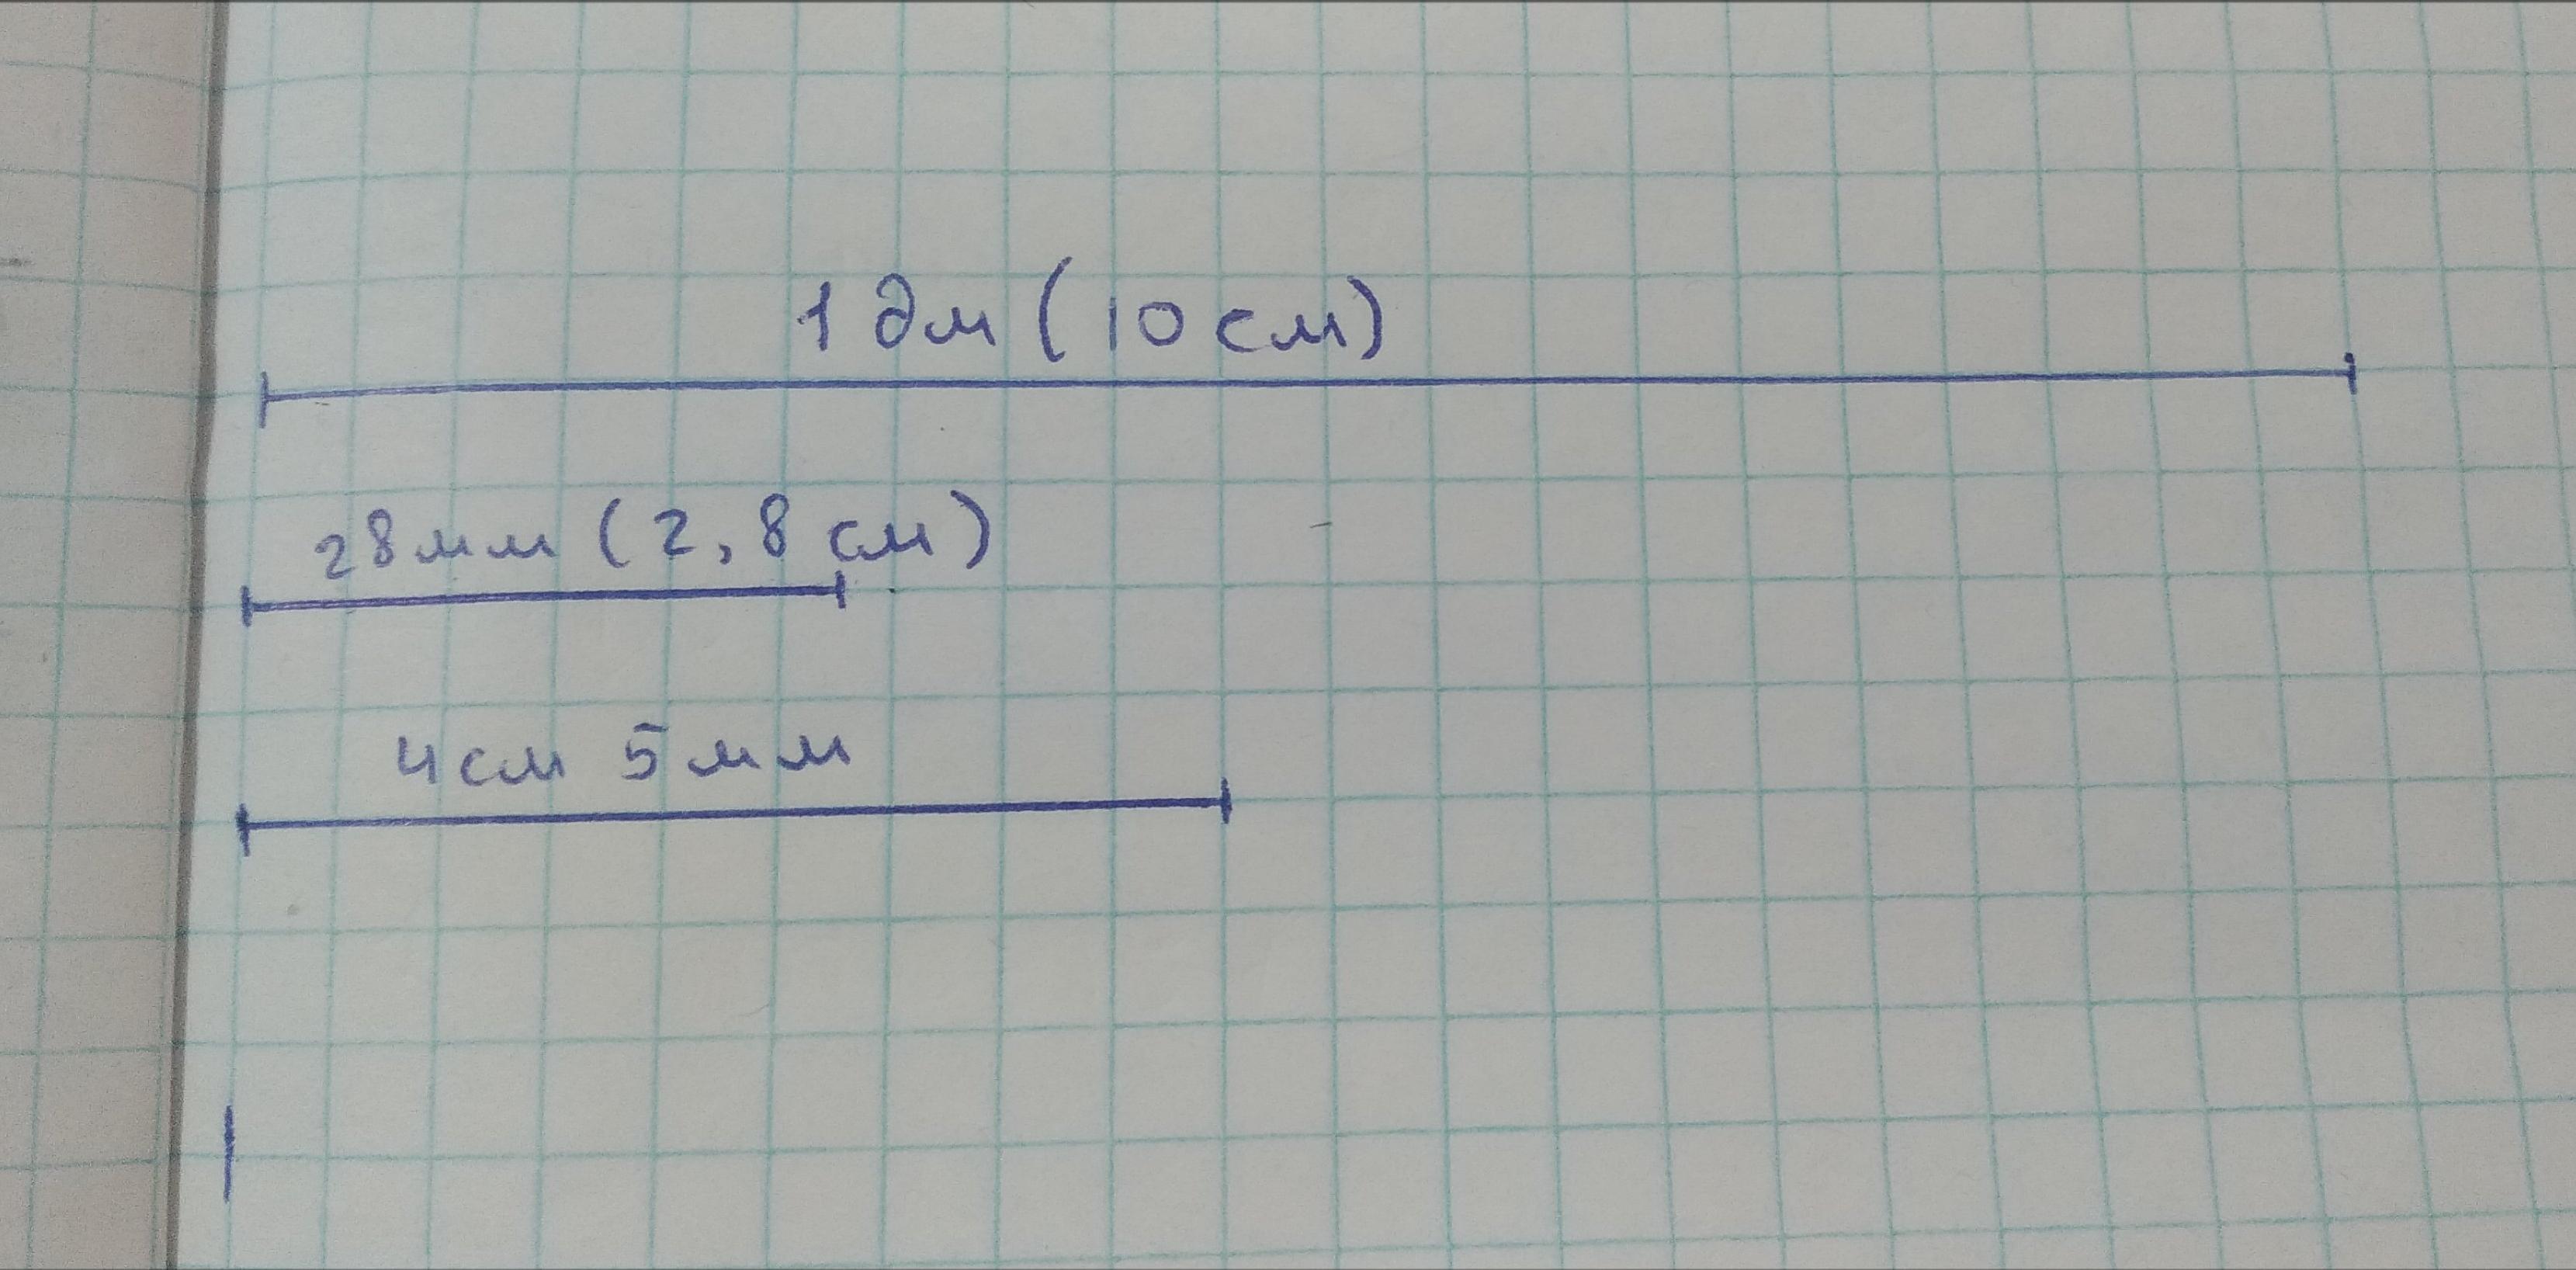 1 дм (10 см)
28мм (2,8 см)
4см 5мм